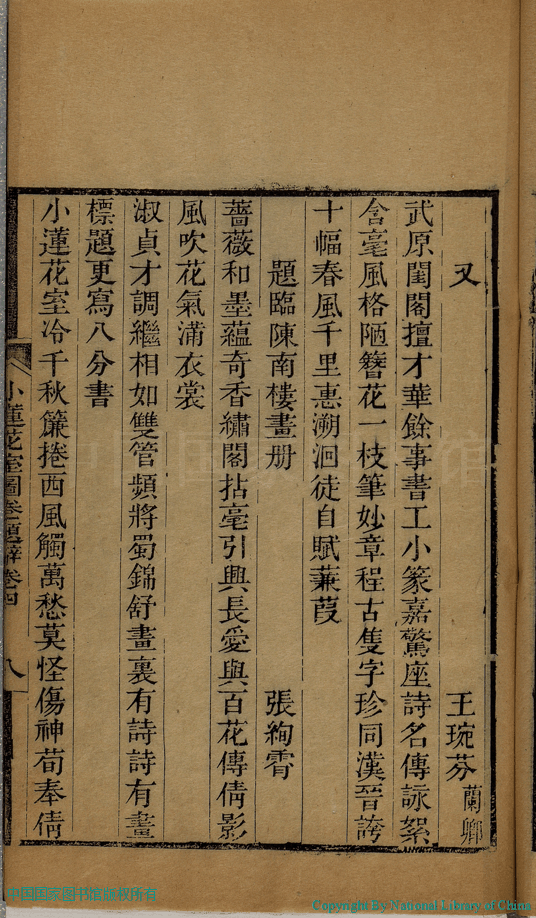 又　王琬芬蘭卿
武原閨閣擅才華餘事書工小篆嘉驚座詩名傳詠絮
含毫風格陋簪花一枝筆妙章程古隻字珍同漢晉誇
十幅春風千里惠溯洄徒自賦蒹葭
題臨陳南樓畫册　張絢霄
薔薇和墨蘊奇香繡閣拈毫引興長愛與百花傳倩影
風吹花氣滿衣裳
淑貞才調繼相如雙管頻將蜀錦舒畫裏有詩詩有畫
標題更寫八分書
小蓮花室冷千秋簾捲西風觸萬愁莫怪傷神荀奉倩
小蓮花室圖卷題辭卷四　八
中国国家图书馆
中国国家图书馆版权所有
Copyright By National Library of China